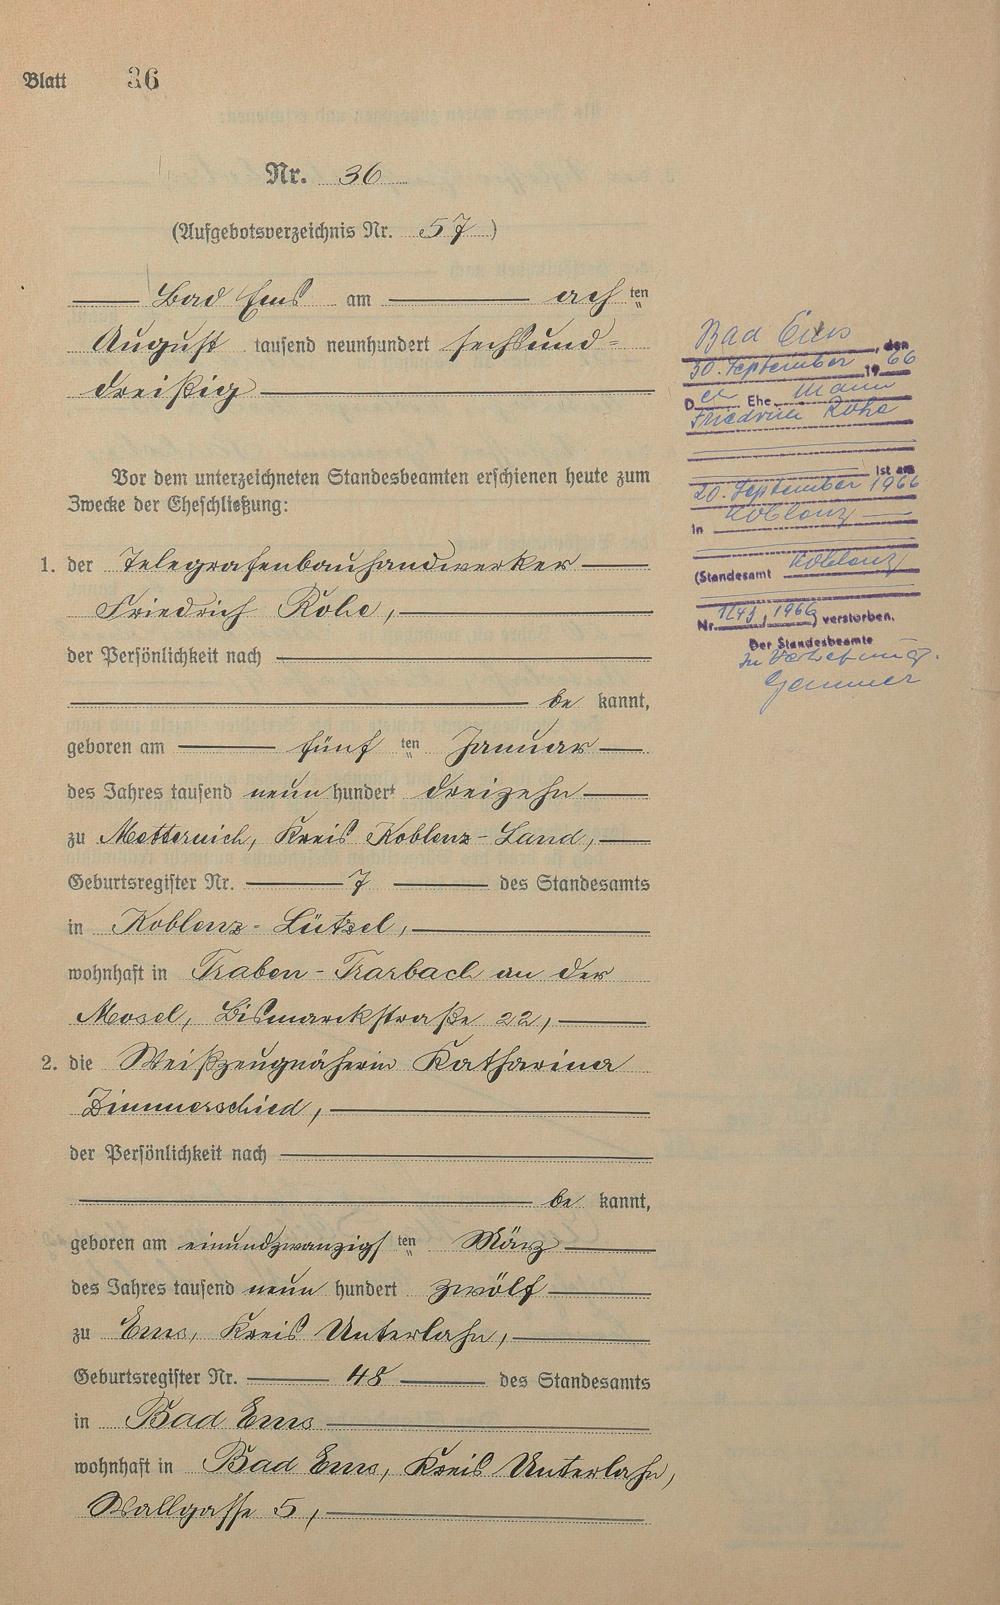 Blatt 36
Nr. 36
(Aufgebotsverzeichnis Nr. 57)
Bad Ems am achten
August tausend neunhundert sechsund=
dreißig
Vor dem unterzeichneten Standesbeamten erschienen heute zum
Zwecke der Eheschließung:
1. der Telegrafenbauhandwerker
Friedrich Rohe,
der Persönlichkeit nach
be kannt,
geboren am fünften Januar
des Jahres tausend neunhundert dreizehn
zu Metternich, Kreis Koblenz-Land,
Geburtsregister Nr. 7 des Standesamts
in Koblenz-Lützel,
wohnhaft in Traben-Trarbach an der
Mosel, Bismarckstraße 22,
2. die Weißzeugnäherin Katharina
Zimmerschied,
der Persönlichkeit nach
be kannt,
geboren am einundzwanzigsten März
des Jahres tausend neun hundert zwölf
zu Ems, Kreis Unterlahn,
Geburtsregister Nr. 48 des Standesamts
in Bad Ems
wohnhaft in Bad Ems, Kreis Unterlahn,
Wallgasse 5,
Bad Ems, den
30. September 1966
Der Ehe mann
Friedrich Rohe
ist am
20. September 1966
in Koblenz
(Standesamt Koblenz
Nr. 1966) verstorben.
Der Standesbeamte
In Vertretung.